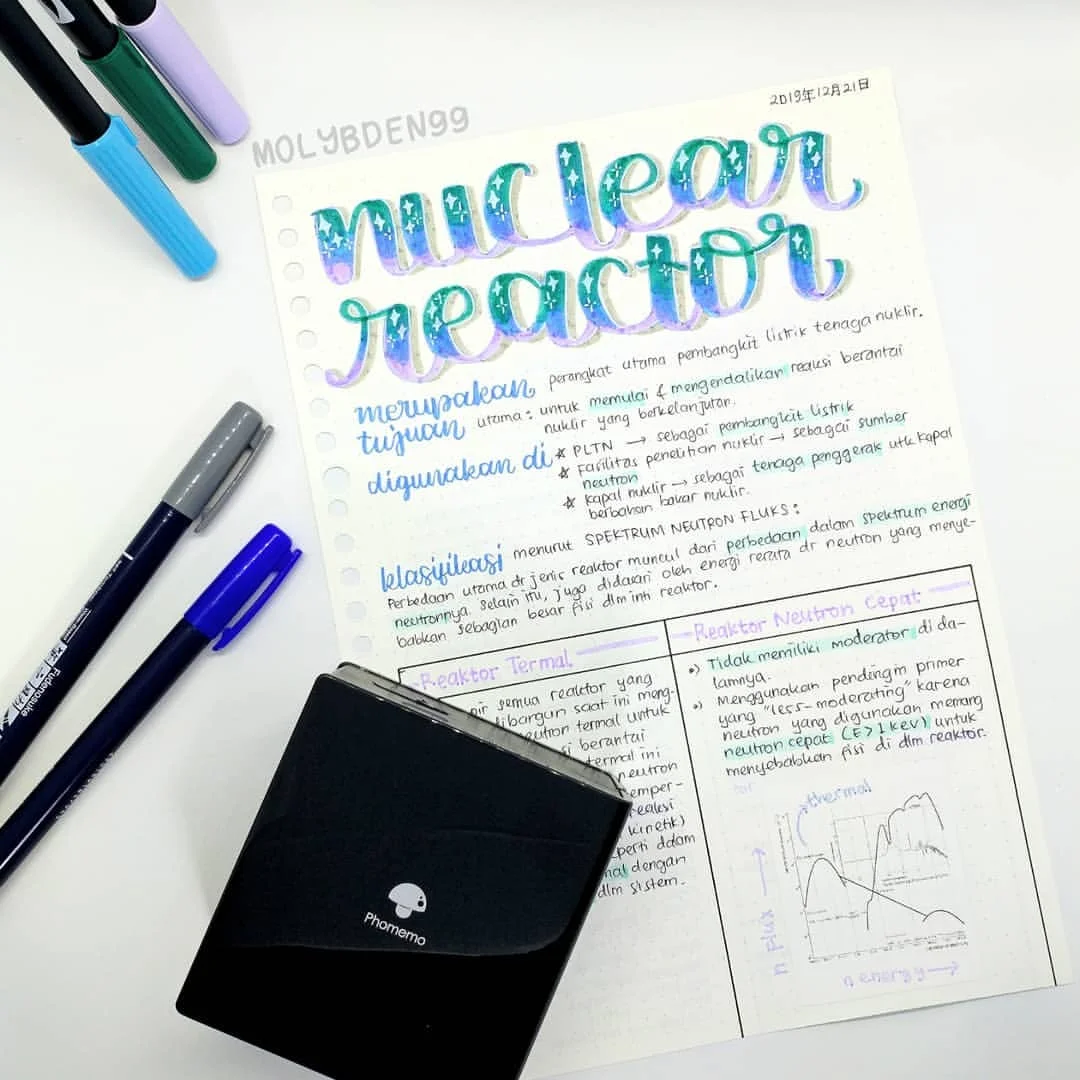 MOLYBDEN99
2019年12月21日
nuclear
reactor
merupakan perangkat utama pembangkit listrik tenaga nuklir.
tujuan utama: untuk memulai & mengendalikan reaksi berantai
nuklir yang berkelanjutan.
digunakan di ☆ PLTN → sebagai pembangkit listrik
☆ Fasilitas penelitian nuklir → sebagai sumber
neutron
☆ kapal nuklir → sebagai tenaga penggerak utk kapal
berbahan bakar nuklir.
klasifikasi menurut SPEKTRUM NEUTRON FLUKS:
Perbedaan utama dr jenis reaktor muncul dari perbedaan dalam spektrum energi
neutronnya. Selain itu, juga didasari oleh energi rerata dr neutron yang menye-
babkan sebagian besar fisi dlm inti reaktor.
Reaktor Termal
semua reaktor yang
dibangun saat ini meng-
neutron termal untuk
berantai
termal ini
neutron
temper-
reaksi
kinetik)
seperti dalam
dengan
dlm sistem.
Reaktor Neutron Cepat
•) Tidak memiliki moderator di da-
lamnya.
•) Menggunakan pendingin primer
yang "less-moderating" karena
neutron yang digunakan memang
neutron cepat (E>1 keV) untuk
menyebabkan fisi di dlm reaktor.
thermal
n flux →
n energy →
Fudenosuke
Phomemo